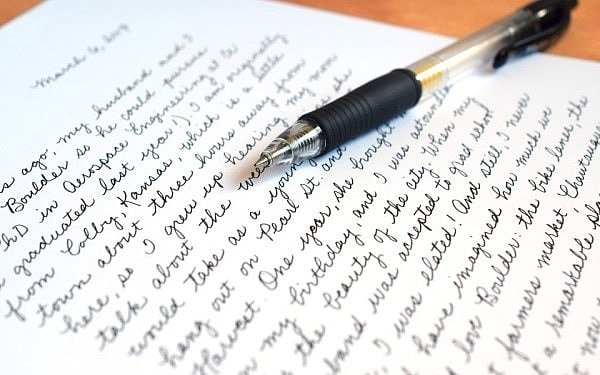 March 6, 2013
s ago. my husband and I
Boulder so he could pursue
PhD in Aerospace Engineering at CU
graduated last year!) I am originally
from Colby, Kansas, which is a little
town about three hours away from
here, so I grew up hearing my mom
talk about the
would take as a young
hang out on Pearl St. and
Harvest. One year, she brought
on my birthday, and I was
the beauty of the city. When my
husband was accepted to grad school
I was elated! And still, I never
have imagined how much we
love Boulder: the bike lanes, the
farmers market, Chautauqua
a remarkable
now